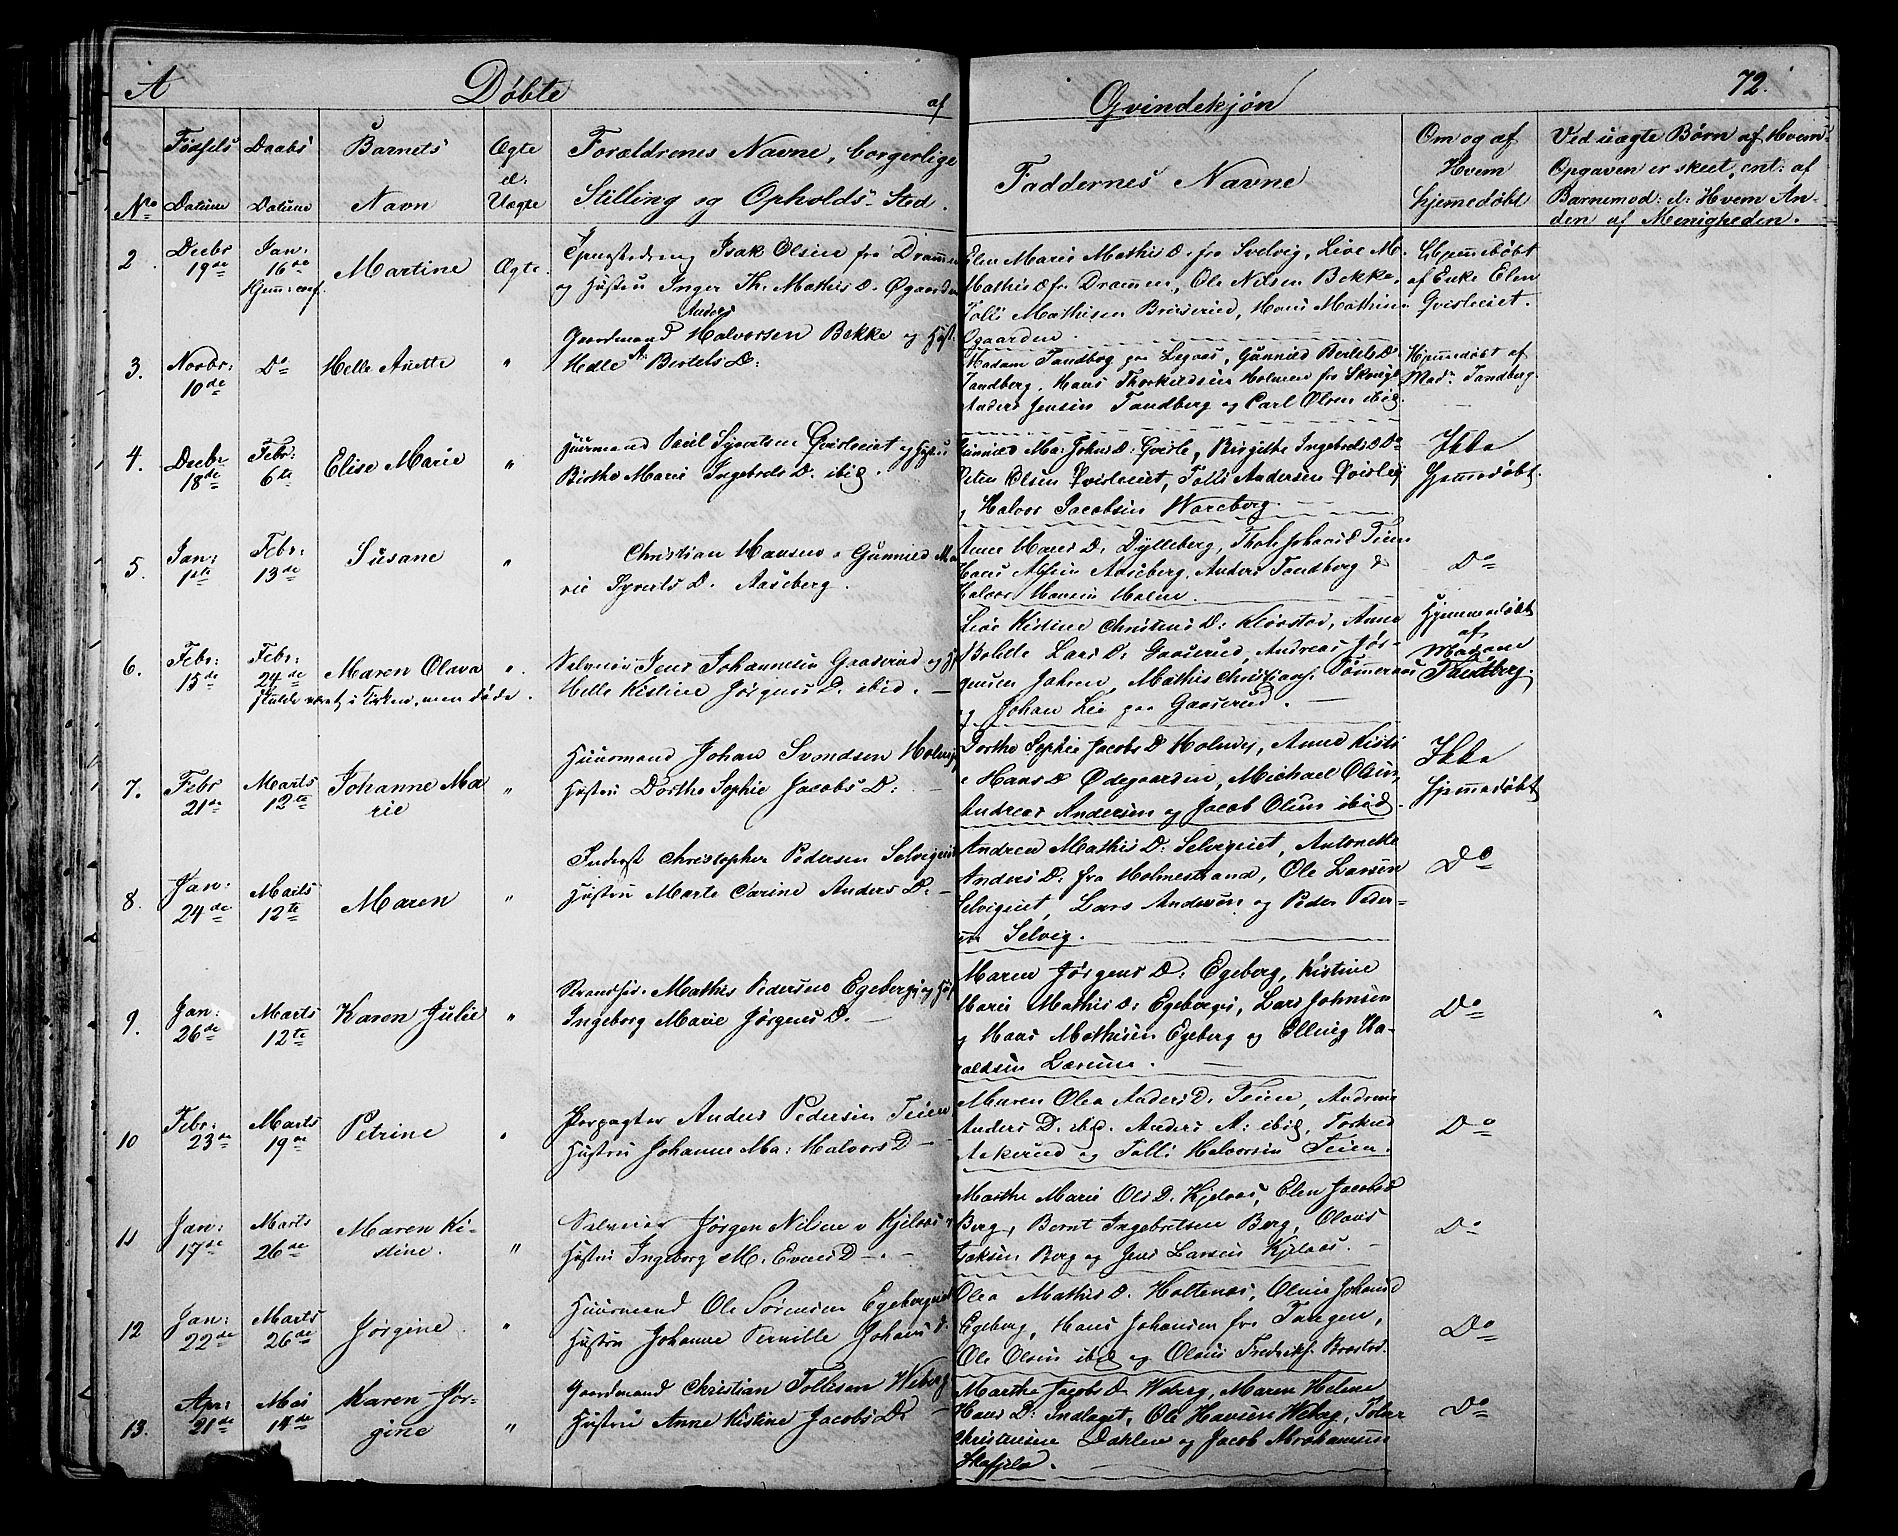 A Døbte af Qvindekjøn 72.
No Fødsels Datum Daabs Datum Barnets Navn Ægte el: Uægte Forældrenes Navne, borgerlige Stilling og Opholds-Sted. Faddernes Navne Om og af Hvem hjemedøbt Ved uægte Børn af Hvem Opgaven er skeet, ent: af Barnemod: el: Hvem An- den af Menigheden.
2. Decbr 19de Jan: 16de Hjem: conf. Martine Ægte.
Isak Olsen fra Drammen
og Hustru Inger Th. Mathis D. Øgaarden
Elen Marie Mathis D. fra Svelvig, Live M.
Mathis D. fra Drammen, Ole Nilsen Bekke,
Tolli Mathisen Bruserud, Hans Mathisen
Øgaarden.
Hjemmedøbt
af Enke Elen
Qvisleeiet.
3. Novbr: 10de Do Helle Anette "
Gaardmand Anders Halvorsen Bekke og Hust:
Hedle A: Bertels D:
Madam Tandberg paa Legaas, Gunnild Bertels D.
Tandberg, Hans Thorkildsen Holmen fra Skouge
Anders Jensen Tandberg og Carl Olsen ibid.
Hjemmedøbt af
Mad: Tandberg.
4. Decbr 18de Febr: 6te Elise Marie "
Huusmand Poul Syvertsen Qvisleeiet og Hustru
Birthe Marie Ingebrets D. ibid.
Gunnild Ma: Johns D: Qvisle, Birgithe Ingebrets D. Do
Peter Olsen Qvisleeiet, Tolli Andersen Qvisle
og Halvor Jacobsen Wareberg.
Ikke
Hjemmedøbt.
5. Jan: 1ste Febr: 13de Susane "
Christian Hansen o Gunnild Ma
rie Syverts D. Aaseberg.
Anne Hans D. Dylleberg, Johans D. Teien
Hans Aaseberg, Anders Tandberg &
Halvor Hansen Holm.
Do
6. Febr: 15de Febr: 24de Maren Olava "
Skulde været i Kirken, men døde.
Selveier Jens Johannesen Graaserud og H
Helle Kistine Jørgens D. ibid.
Lise Kistine Christens D: Klovstad, Anne
Bolide Lars D: Gaaserud, Andreas Jør-
gensen Jahren, Mathis Christians. Tømmeraas
og Johan Lie paa Gaaserud.
Hjemmedøbt
af
Madame
Tandberg.
7. Febr 21de Marts 12te Johanne Ma rie "
Huusmand Johan Svendsen Holm
Hustru Dorthe Sophie Jacobs D:
Dorthe Sophie Jacobs D. Holmej, Anne Kisti
e Hans D. Ødegaarden, Michael Olsen,
Andreas Andersen og Jacob Olsen ibid.
Ikke
Hjemmedøbt
8. Jan: 24de Marts 12te Maren "
Inderst Christopher Pedersen Selvigeiet
Hustru Marte Carine Anders D.
Andrea Mathis D. Selvigeiet, Antonette
Anders D. fra Holmestrand, Ole Larsen
Selvigeiet, Lars Andersen og Peder Peder-
sen Selvig.
Do
9. Jan: 26de Marts 12te Karen Julie "
Strandsid: Mathis Pedersen Egebergei og Hust
Ingeborg Marie Jørgens D.
Maren Jørgens D. Egeberg, Kistine
Marie Mathis D. Egebergei, Lars Johnsen
og Hans Mathisen Egeberg og Elling Ha-
raldsen Lærum.
Do
10 Febr: 23de Marts 19de Petrine "
Forpagter Anders Pedersen Teien
Hustru Johanne Ma: Halvors D
Maren Olea Anders D. Teien, Andrine
Anders D. ibid. Anders A: ibid, Torkild
Askerud og Tolli Halvorsen Teien.
Do
11 Jan: 17de Marts 26de Maren Ki- stine. "
Selveier Jørgen Nilsen v Kjelaas
Hustru Ingeborg M. Evens D
Marthe Marie Ols D. Kjelaas, Elen Jacobs
Berg, Bernt Ingebretsen Berg, Olaus
Isaksen Berg og Jens Larsen Kjelaas.
Do
12 Jan: 22de Marts 26de Jørgine. "
Huusmand Ole Sørensen Egebergeiet
Hustru Johanne Pernille Johans D.
Olea Mathis D. Holtenaas, Oline Johans D
Egeberg, Hans Johansen fra Tangen,
Ole Olsen ibid og Olaus Fredriks. Brostad.
Do
13. Apr: 21de Mai 14de Karen Jør- gine "
Gaardmand Christian Tollisen Weberg
Hustru Anne Kistine Jacobs D.
Marthe Jacobs D. Weberg, Maren Helene
Hans D. Indlaget, Ole Hansen Weberg, Tolv
Christensen Dahlen og Jacob Abrahamsen
Skafjeld.
Do